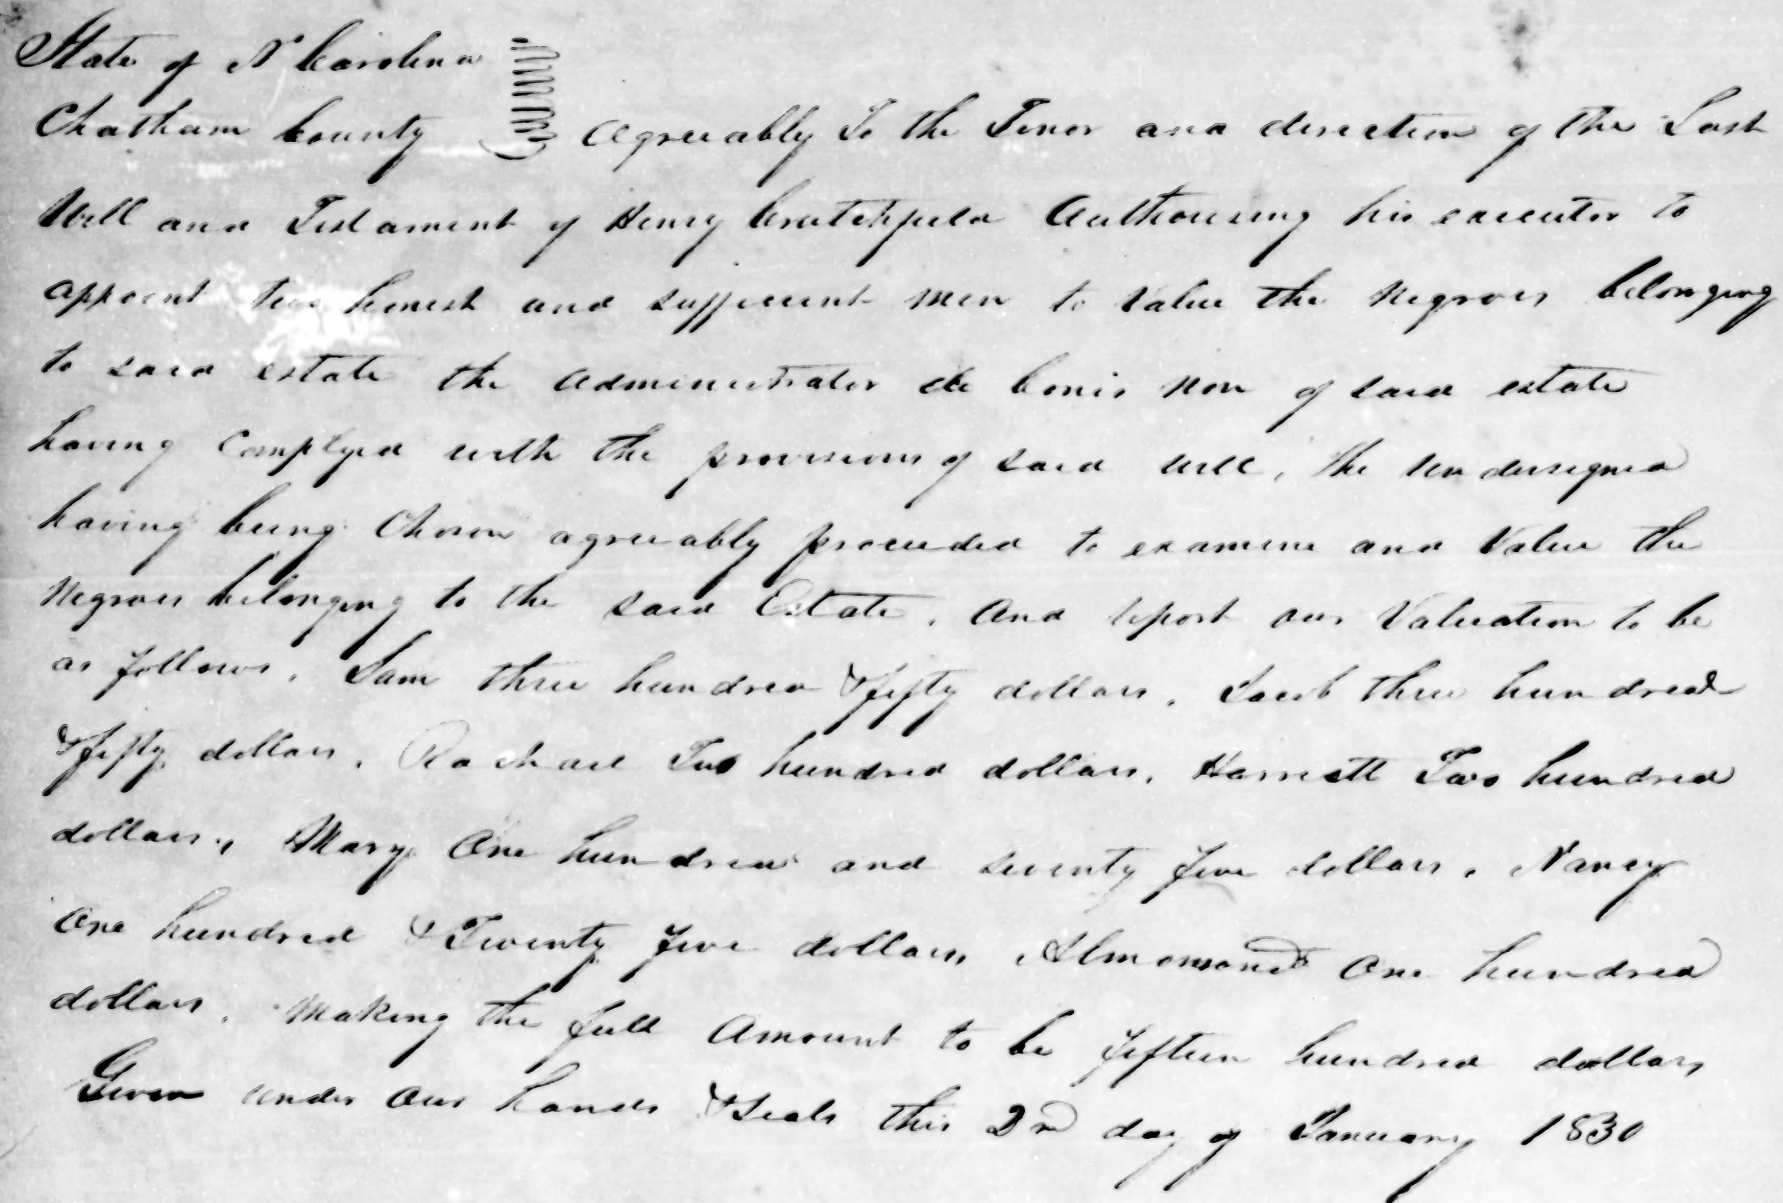 State of N Carolina
Chatham County Agreeably To the Tenor and direction of the Last
Will and Testament of Henry Crutchfield Authorising his executor to
appoint two honest and sufficient men to Value the Negroes belonging
to said estate the Administrator de bonis non of said estate
having Complyed with the provisions of said will, the undersigned
having being Chosen agreeably proceeded to examine and Value the
Negroes belonging to the said Estate, and report our Valuation to be
as follows, Sam three hundred & fifty dollars, Jacob three hundred
& fifty dollars, Rachael Two hundred dollars, Harriett Two hundred
dollars, Mary One hundred and seventy five dollars, Nancy
One hundred & Twenty five dollars, Almomond One hundred
dollars, Making the full Amount to be fifteen hundred dollars
Given under our hands & Seals this 2nd day of January 1830